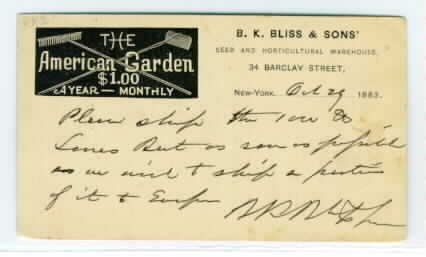 THE
American Garden
$1.00
A YEAR — MONTHLY
B. K. BLISS & SONS'
SEED AND HORTICULTURAL WAREHOUSE,
34 BARCLAY STREET,
NEW-YORK, Oct 29 1883.
Please ship the 1000
as soon as possible
as we wish to ship a portion
of it to Europe